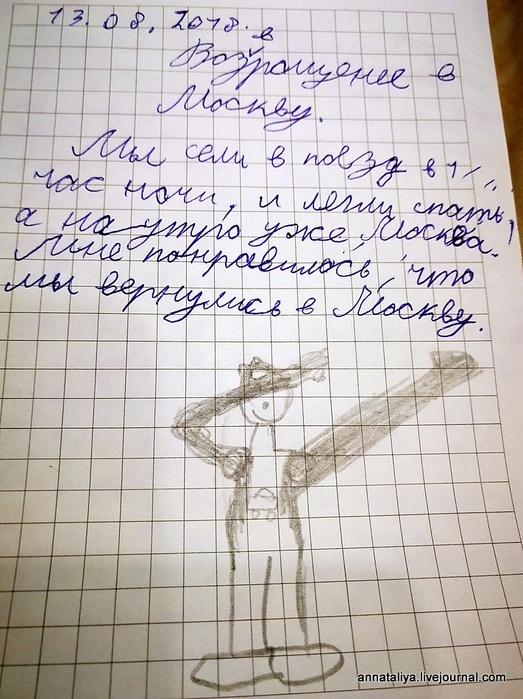 13.08.2018.
Возвращенее в
Москву.
Мы сели в поезд в 1
час ночи, и легли спать,
а на утро уже, Москва!
Мне понравилось, что
мы вернулись в Москву.
annataliya.livejournal.com